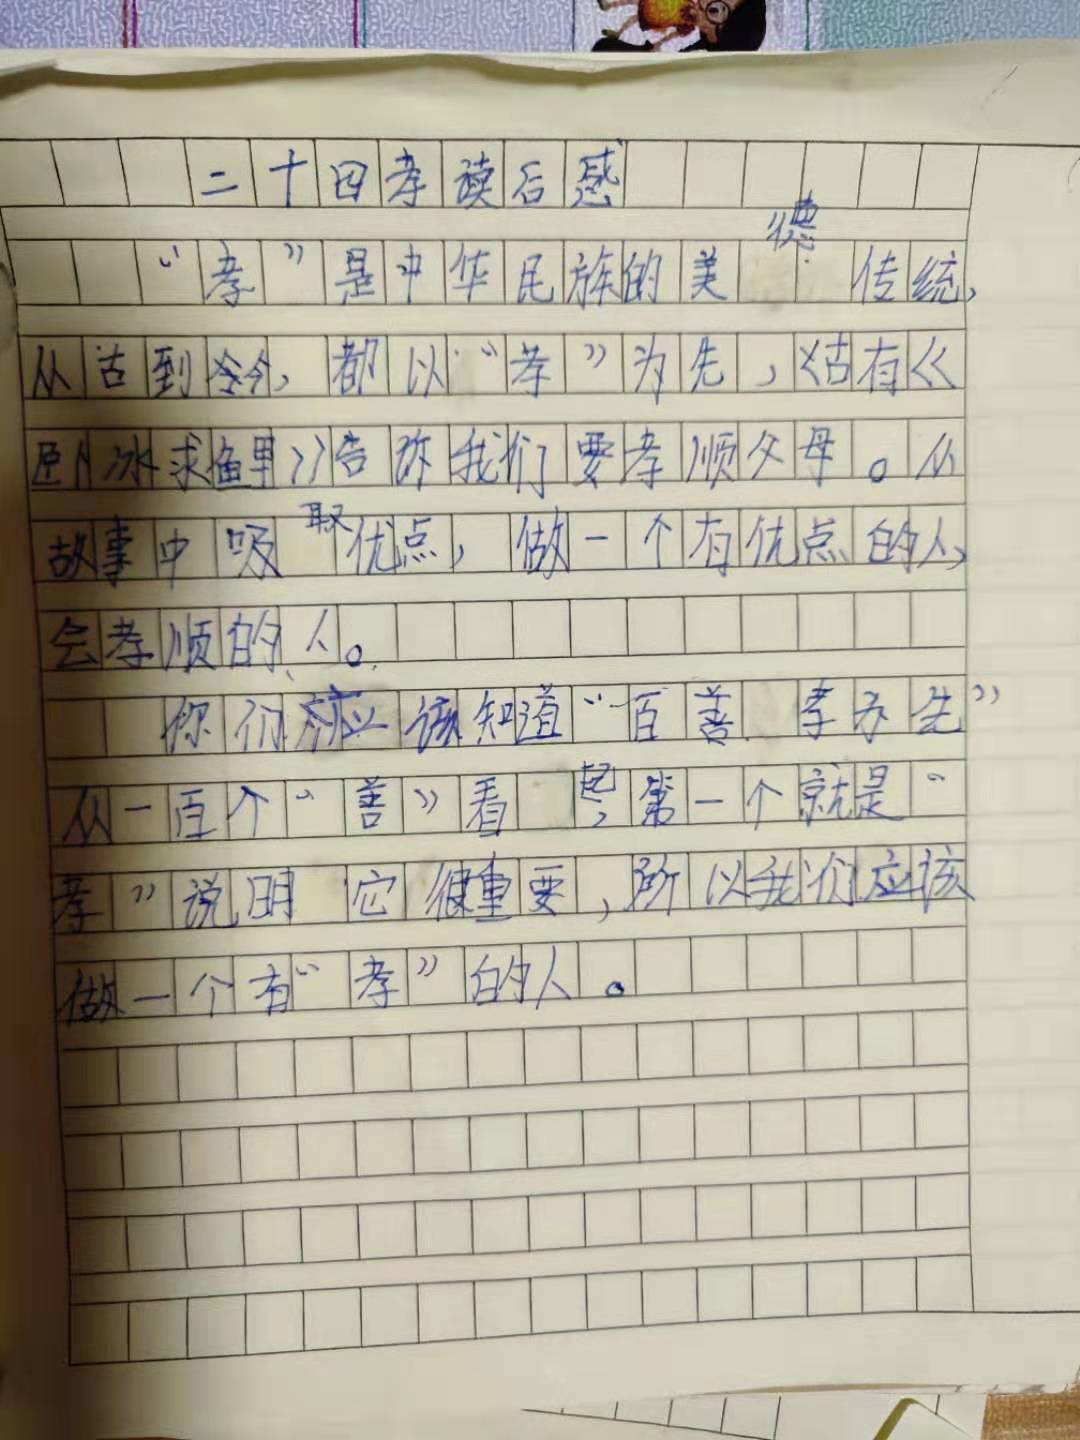 二十四孝读后感
“孝”是中华民族的美德传统,
从古到今,都以“孝”为先,古有《
卧冰求鲤》告诉我们要孝顺父母。从
故事中吸取优点,做一个有优点的人,
会孝顺的人。
你们应该知道“百善孝为先”
从一百个“善”看起,第一个就是“
孝”说明它很重要,所以我们应该
做一个有“孝”的人。